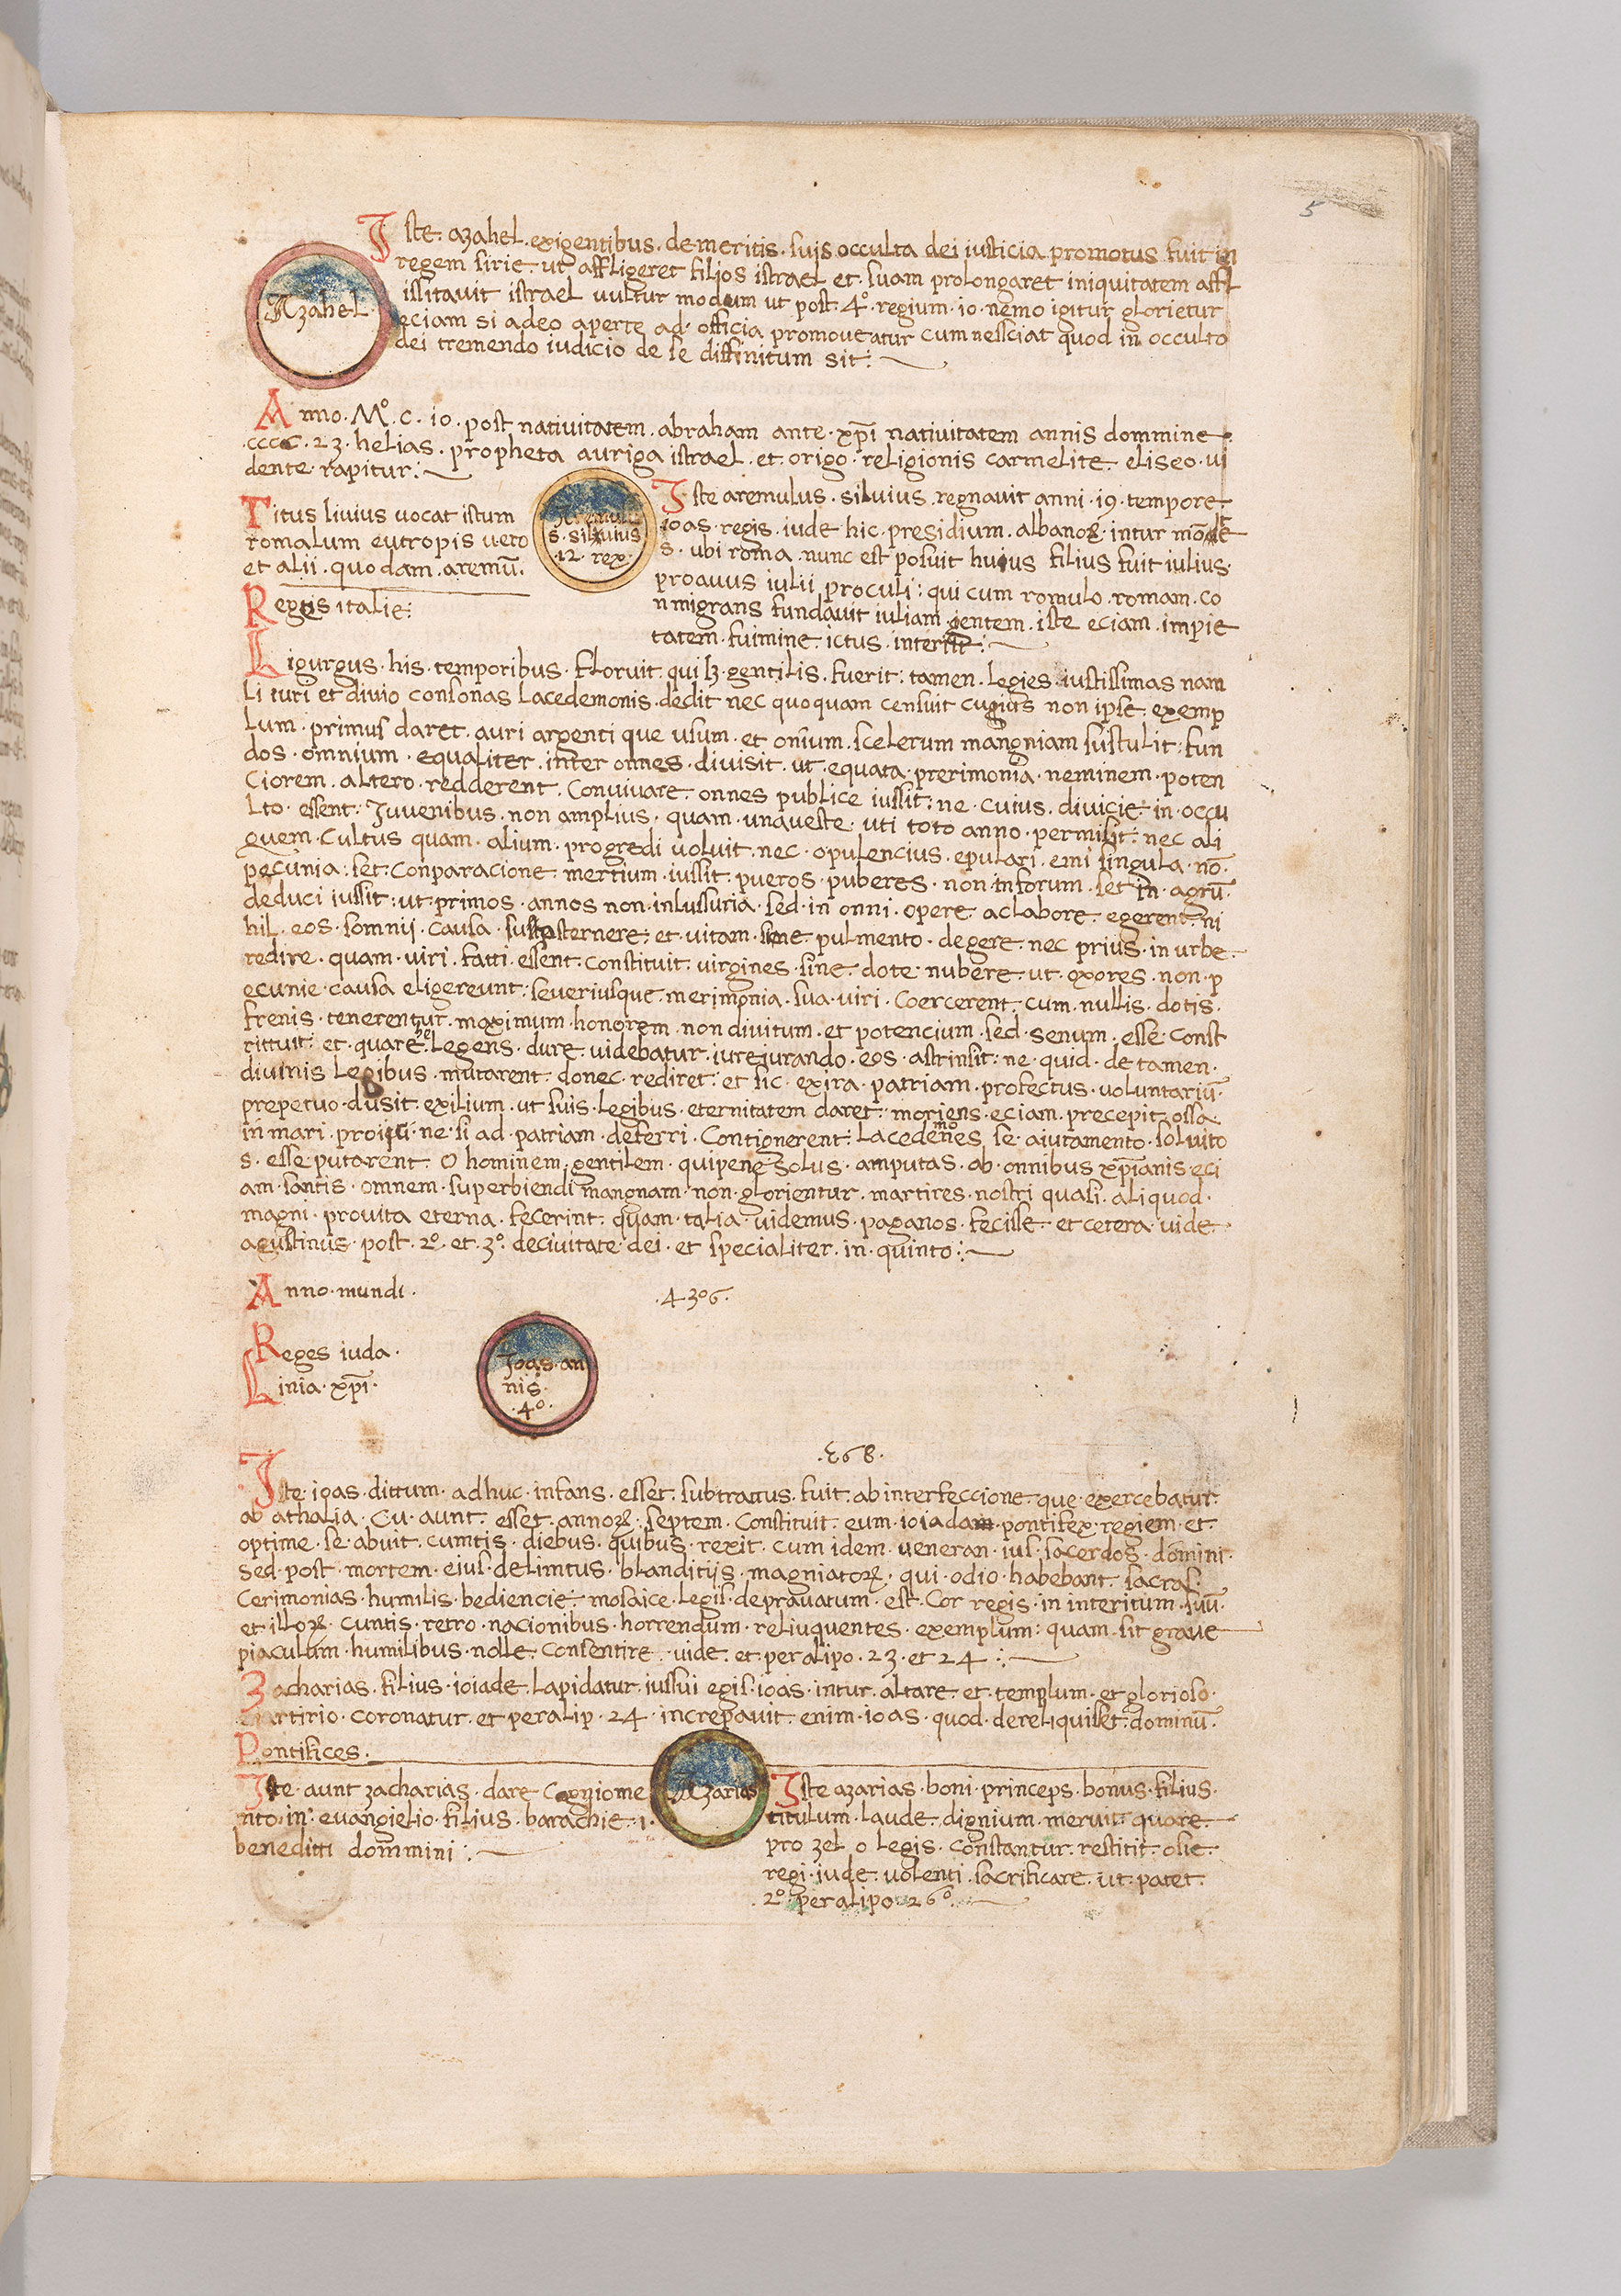 5
Iste. azahel. exigentibus. demeritis. suis occulta dei iusticia promotus fuit in
regem sirie. ut affligeret filios istrael et. suam prolongaret iniquitatem affl
issitavit istrael uultur modum ut post. 4º. regium. io. nemo igitur glorietur
Azahel.
eciam si adeo aperte ad. officia promoueatur cum nessciat quod in occulto
dei tremendo iudicio de se diffinitum sit:
Anno. Mº. c. io. post natiuitatem. abraham ante. xp̄i natiuitatem annis dommine.
.cccc. 23. helias. propheta auriga istrael. et. origo. religionis carmelite. eliseo. ui
dente. rapitur:
Titus liuius uocat istum
romalum eutropis uero
et alii. quodam. aremū.
s. siluius
.12. rex.
Iste aremulus. siluius. regnauit anni. 19. tempore.
ioas. regis. iude hic. presidium. albanoꝝ. intur
s. ubi roma. nunc est posuit huius filius fuit iulius.
proauus iulii proculi: qui cum romulo. romam. co
nmigrans fundauit iuliam gentem. iste eciam. impie
tatem. fuimine. ictus. interiit:
Regis italie:
Ligurgus. his. temporibus. floruit. qui lꝫ. gentilis. fuerit: tamen. legies iustissimas nam
li iuri et diuio consonas lacedemonis. dedit nec quoquam censuit cugius non ipse. exemp
lum. primus daret. auri argenti que usum. et onīum. scelerum mangniam sustulit: fun
dos. omnium. equaliter. inter onnes. diuisit. ut. equata. prerimonia. neminem. poten
ciorem. altero. redderent. Conuiuare. onnes publice iussit: ne. cuius. diuicie. in. occu
lto. essent. Iuuenibus. non amplius. quam. unaueste. uti toto anno. permisit: nec ali
quem. cultus quam. alium. progredi uoluit. nec. opulencius. epulari. emi singula. nō.
pecunia: set. Conparacione. mertium. iussit. pueros. puberes. non. inforum. set in. agrū.
deduci iussit: ut. primos. annos non. inlussuria. sed. in onni. opere. aclabore. egerent. ni
hil. eos. somnij. causa. susternere: et. uitam. sine. pulmento. degere. nec prius. in urbe.
redire. quam. uiri. fatti. essent. constituit. uirgines. sine. dote. nubere. ut. oxores. non. p
ecunie. causa eligereunt: seueriusque. merimonia. sua. uiri. coercerent. cum. nullis. dotis.
frenis. tenerentur. maximum. honorem. non diuitum. et potencium. sed. senum. esse. const
rittuit. et. quare. legens. dure. uidebatur. iureiurando. eos. astrinsit: ne. quid. de tamen.
diuinis legibus. mutarent. donec. rediret. et sic. exira. patriam. profectus. uoluntariū.
prepetuo. dusit. exilium. ut suis. legibus. eternitatem daret. moriens. eciam. precepit. ossa.
in mari. proiici. ne. si ad. patriam. deferri. Contignerent. lacedemones se. aiutamento. soluto
s. esse putarent. O hominem. gentilem. quipene. solus. amputas. ab. onnibus xp̄ianis. eci
am. santis. omnem. superbiendi mangnam. non. glorientur. martires. nostri quasi. aliquod.
magni. prouita eterna. fecerint. quam. talia. uidemus. paganos. fecisse. et cetera. uide.
agustinus. post. 2º. et. 3º. deciuitate dei. et specialiter. in. quinto:
Anno. mundi. .4306.
Reges iuda.
Linia. xp̄i.
Ioas. an
nis.
.40.
Iste. ioas. dittum. adhuc. infans. esset. subtrattus. fuit. ab interfeccione. que. exercebatur.
ab athalia. Cu. aunt. esset. annoꝝ. septem. Constituit. eum. ioiadam. pontifex. regiem. et.
optime. se. abuit. cumtis. diebus. quibus. rexit. cum idem. ueneran. ius. sacerdos. domini.
sed. post. mortem. eius. delimtus. blanditijs. magniatoꝝ. qui. odio. habebant. sacras.
Cerimonias. humilis. bediencie. mosaice. legis. deprauatum. est. Cor regis. in interitum. suū.
et illoꝝ. cuntis. retro. nacionibus. horrendum. reliuquentes. exemplum: quam. sit graue
piaculum. humilibus. nolle. Consentire. uide. et. peralipo. 23. et 24.:
Zacharias. filius. ioiade. lapidatur. iussui egis. ioas. intur. altare. et. templum. et glorioso.
martirio. coronatur. et peralip. 24. increpauit. enim. ioas. quod. dereliquisset. dominū.
Pontifices.
Iste. aunt zacharias. dare cogniome
nto. in. euangielio. filius. barachie. i.
beneditti dommini:
Azarias
Iste azarias. boni. princeps. bonus. filius.
titulum. laude. dignium. meruit. quare.
pro zel o legis. constantur. restitit. osie.
regi. iude. uolenti. sacrificare. ut. patet.
.2º. peralipo. 26º.